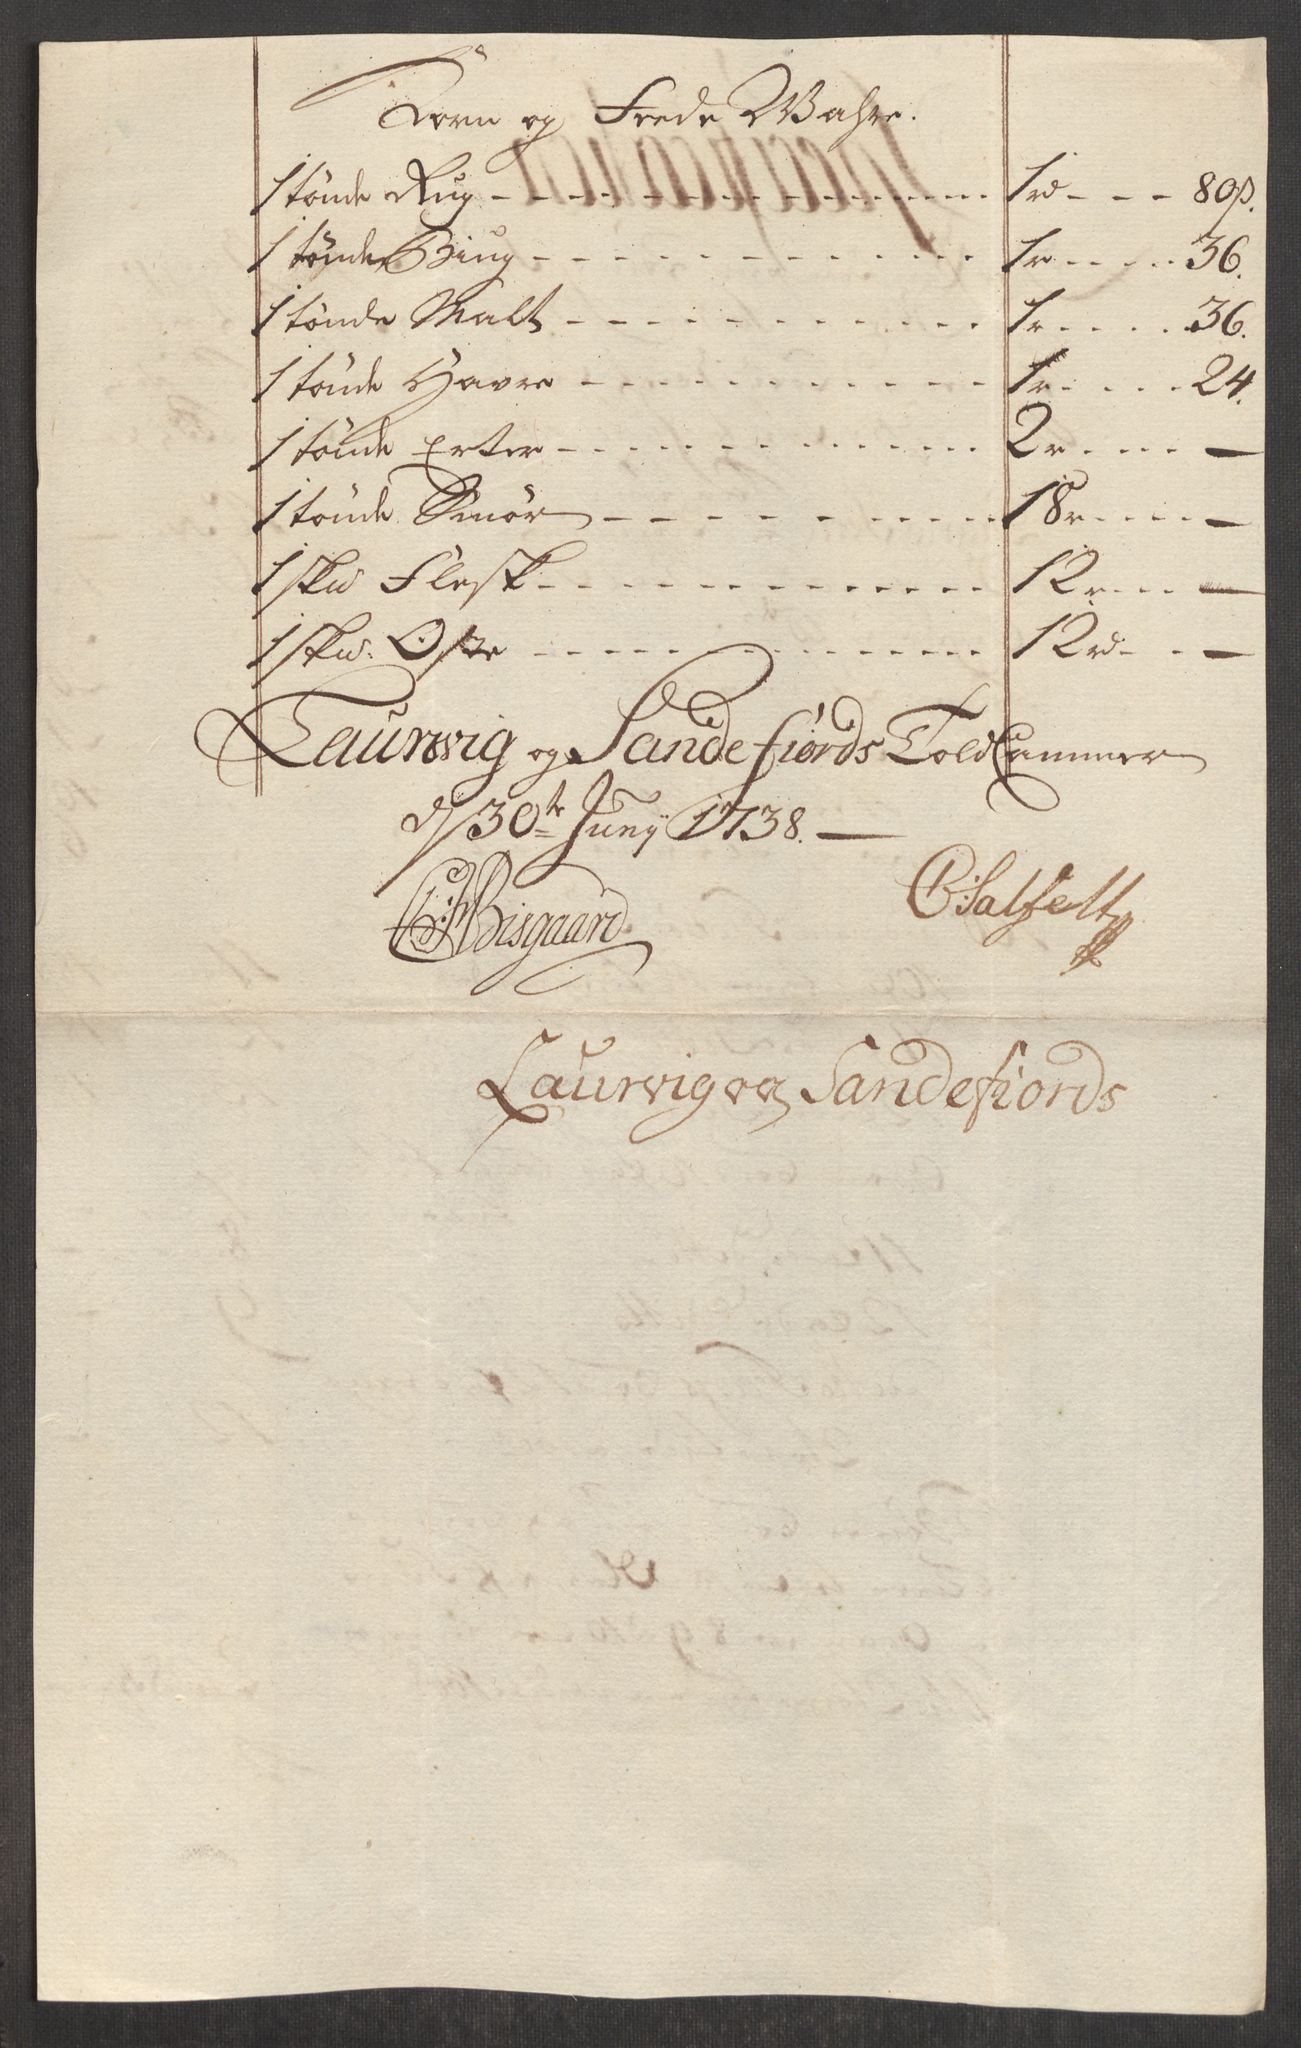 Korn og Fede Wahre.
1 tönde Rug - - - - - - - - - 1 rd - - - 80 s.
1 tönde Biug - - - - - - - - - 1 r - - - - 36.
1 tönde Malt - - - - - - - - - 1 r - - - - 36.
1 tönde Havre - - - - - - - - - 1 r - - - - 24.
1 tönde Erter - - - - - - - - - 2 r - - - - —
1 tönde Smör - - - - - - - - - 18 r - - - - —
1 skd Flesk - - - - - - - - - 12 r - - - —
1 skd. Oste - - - - - - - - - 12 rd - - - —
Laurwig og Sandefiords Told Cammer
d 30te Juny 1738. —
Bisgaard
Salfelt
Laurvig og Sandefiords